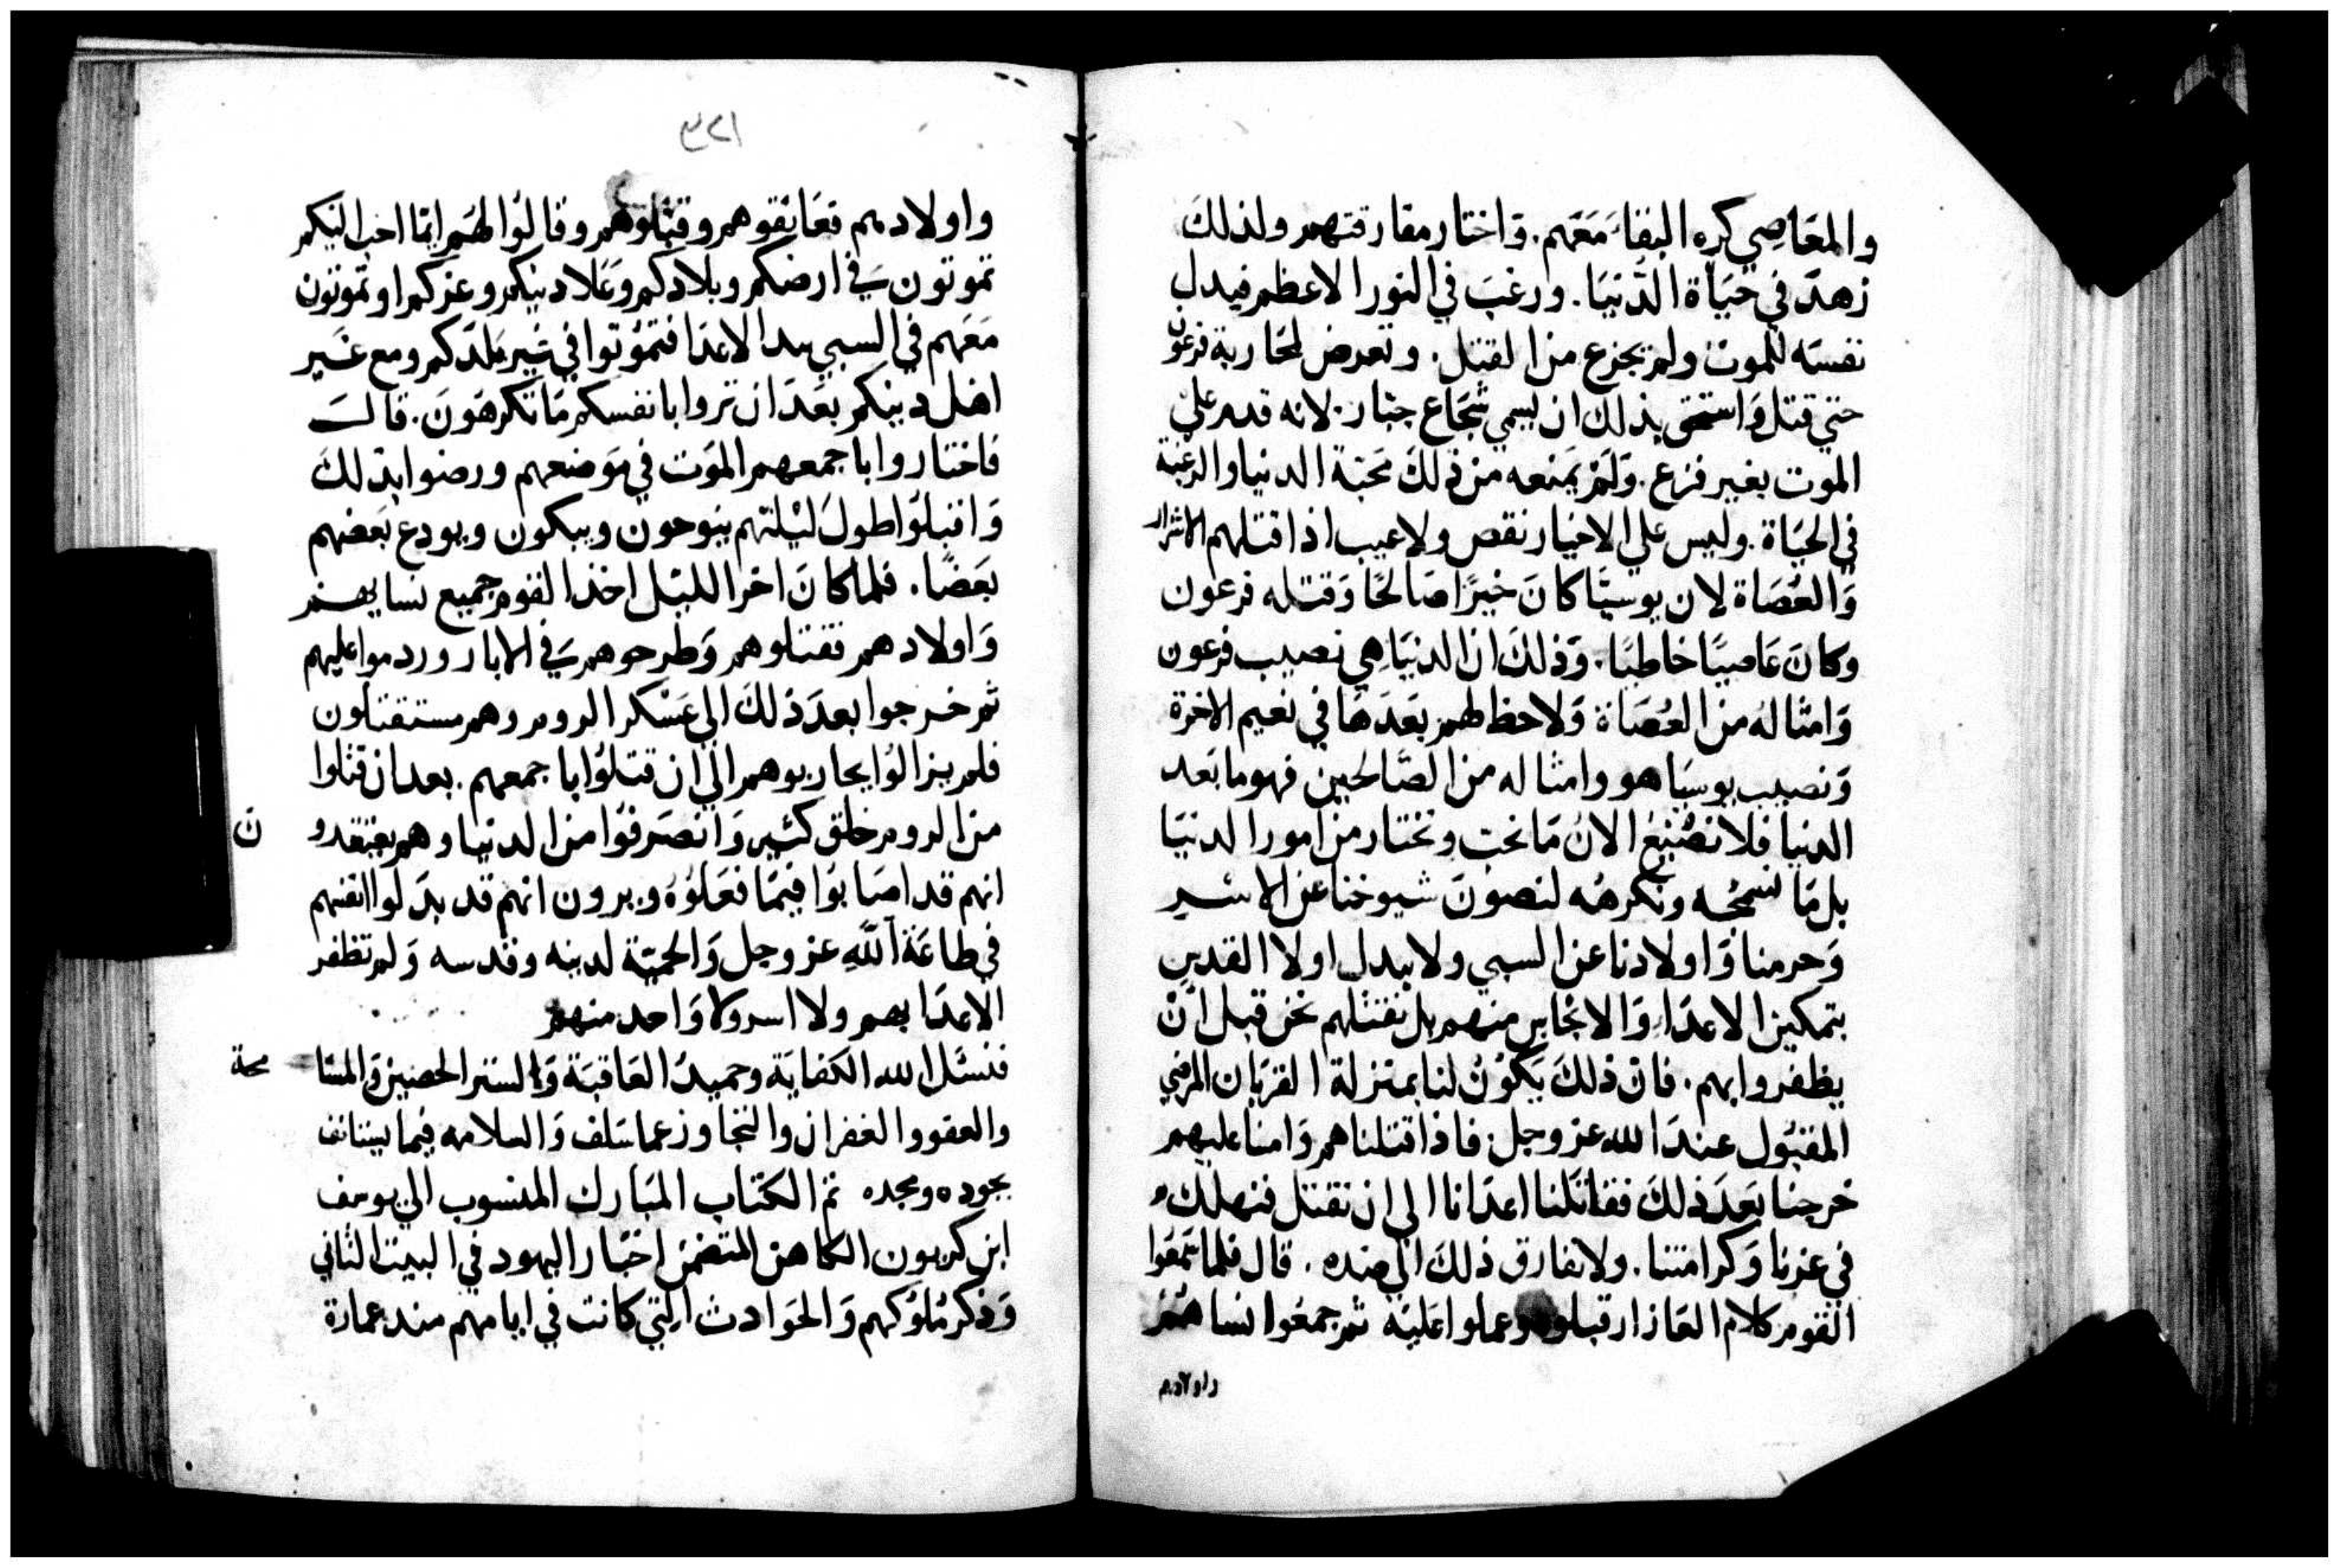 والمعَاصِي كره البقا مَعَهم. وَاختار مفارقتهم ولذلكَ
زهدَ في حَيَاة الدُّنيَا. ورغبَ في النور الاعظم فبدل
نفسَه للموت ولم يجزع من القتل. وتعرض لمحَاربة فرعون
حتي قتل وَاستحق بذلك ان يسمي شجَاع جبّار. لانه قدم علي
الموت بغير فزع. وَلَم يَمنعه من ذلكَ مَحَبّة الدنيا والرغبة
في الحيَاة. وليس علي الاخيار نقص ولا عيب اذا قتلهم الاشرار
وَالعُصَاة لان يوسيَّا كانَ خيرًا صَالحًا وَقتله فرعون
وكانَ عَاصيًا خاطيًا. وَذلكَ ان الدنيَا هِي نصيب فرعون
وَامثاله من العُصَاة وَلا حظ لهم بَعَدهَا في نعيم الاخرة
وَنصيب يوسيَا هو وامثاله من الصَّالحين فهو ما بَعد
الدنيا فلا نصْنع الان مَا نحب ونختار من امور الدنيَا
بل مَا نسمجه ونكرهُه لنصونَ شيوخنا عن الاسْــر
وَحرمنا وَاولادنا عن السبي ولا نبدل اولا القدس
بتمكين الاعدَاء وَالانجاس منهم بل نقتلهم نحن قبل انْ
يظفروا بهم. فانَ ذلكَ يَكوُن لنا بمنزلة القربَان المرضي
المقبُول عندَ الله عز وجل. فاذا قتلناهم وَامنا عليهم
خرجنا بَعَدَ ذلكَ فقاتَلنا اعدَانا الي ان نقتل فنهلك
في عزنا وَكرامتنا. ولا نفارق ذلكَ الي ضده. قال فلما سمعُوا
القوم كلام العَازار قبلوه وعملوا عَليْه ثم جمعُوا نساهُم
واولادهم
٣٢١
واولادهم فعَانقوهم وقبّلوهم وقالوُا لهُم ايّما احبّ اليَكم
تموتون في ارضكم وبلادكم وعَلا دينكم وعزكم او تموتون
مَعَهم في السبي بيد الاعدَا فتموُتوا في غير بلدكم ومع غَــير
اهل دينكم بعَدَ ان تروا بانفسكم مَا تكرهَونَ. قالــَ
فاختاروا باجمعهم الموت في مَوضعهم ورضوا بذلكَ
وَاقبلوُا طولَ ليْلتهم ينوحون ويبكون ويودع بَعَضهم
بَعَضًا. فلما كانَ اخر الليْل اخذ القوم جميع نسايهــم
وَاولادهم فقتلوهم وَطرحوهم في الابار وردموا عليهم
ثم خرجوا بعدَ ذلكَ الي عَسْكر الروم وهم مستقتلون
فلم يزالوُا يحاربوهم الي ان قتلوُا باجمعهم. بعد ان قتلوا
من الروم خلق كثير وَانصَرفوُا من الدنيا وهم يعتقدو
ن
انهم قد اصَابوُا فيمَا فعَلوُه ويرون انهم قد بدَلوا انفسَهم
في طاعَة اللّه عز وجل وَالحميّة لدينه وقدسه وَلم تظفر
الاعدَا بهم ولا اسروا وَلا وَاحد منهم
فنسئل الله الكفايَة وحميدُ العَاقبَة وَالستر الحصين وَالمسَا
محة
والعفو والغفران والتجاوز عما سَلف وَالسلامه فيما يستانف
بجوده ومجده تم الكتاب المبَارك المنسوب الي يوسف
ابن كربون الكاهن المتضمن اخبَار اليهود في البيت الثاني
وَذكر مُلوُكهم وَالحَوادث التي كانت في ايامهم منذ عمارة